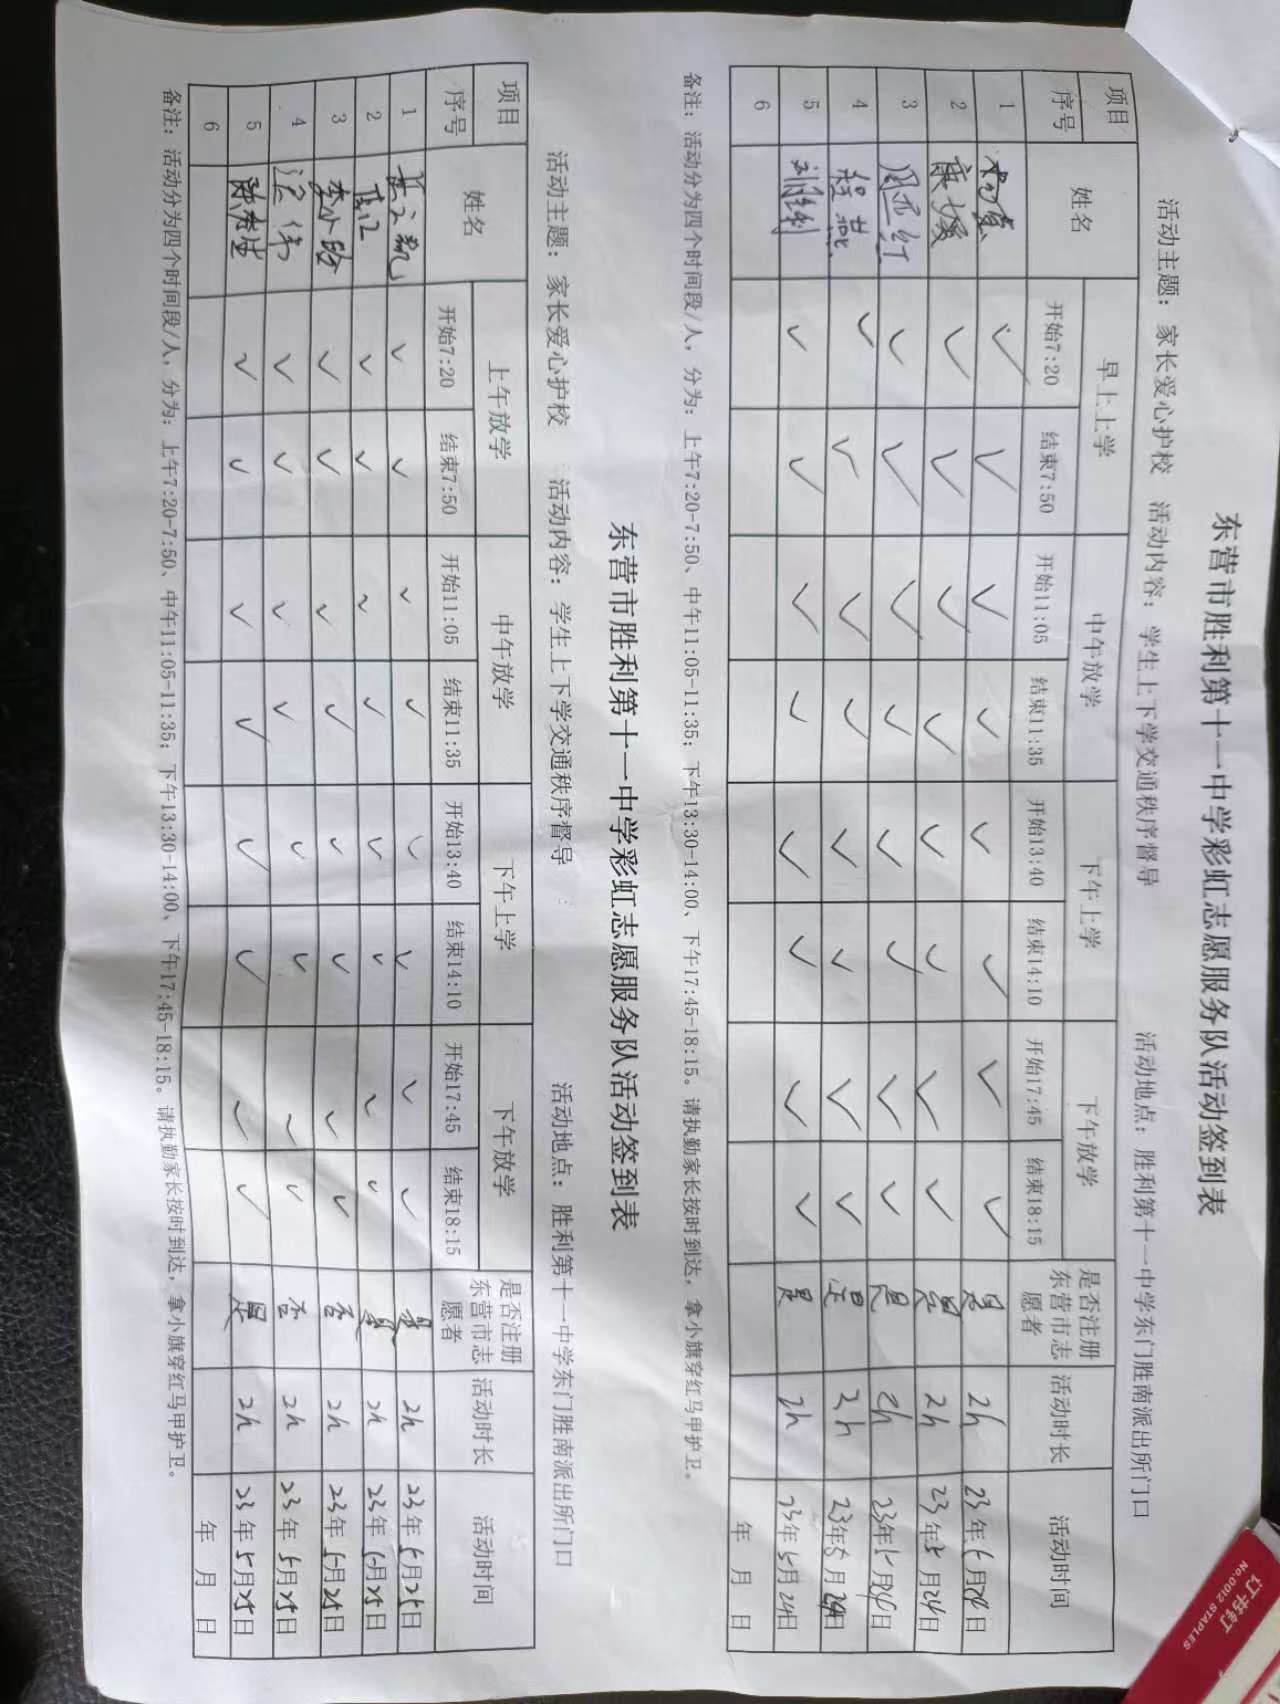 东营市胜利第十一中学彩虹志愿服务队活动签到表
活动主题：家长爱心护校 活动内容：学生上下学交通秩序督导 活动地点：胜利第十一中学东门胜南派出所门口
项目 姓名 早上上学 中午放学 下午上学 下午放学 是否注册东营市志愿者 活动时长 活动时间
序号 开始7:20 结束7:50 开始11:05 结束11:35 开始13:40 结束14:10 开始17:45 结束18:15
1 ✓ ✓ ✓ ✓ ✓ ✓ ✓ ✓ 是 2h 23年5月24日
2 康媛 ✓ ✓ ✓ ✓ ✓ ✓ ✓ ✓ 是 2h 23年5月24日
3 周亚红 ✓ ✓ ✓ ✓ ✓ ✓ ✓ ✓ 是 2h 23年5月24日
4 程燕 ✓ ✓ ✓ ✓ ✓ ✓ ✓ ✓ 是 2h 23年5月24日
5 刘胜利 ✓ ✓ ✓ ✓ ✓ ✓ ✓ ✓ 是 2h 23年5月24日
6 年 月 日
备注：活动分为四个时间段/人，分为：上午7:20-7:50、中午11:05-11:35；下午13:30-14:00、下午17:45-18:15。请执勤家长按时到达，拿小旗穿红马甲护卫。
东营市胜利第十一中学彩虹志愿服务队活动签到表
活动主题：家长爱心护校 活动内容：学生上下学交通秩序督导 活动地点：胜利第十一中学东门胜南派出所门口
项目 姓名 上午放学 中午放学 下午上学 下午放学 是否注册东营市志愿者 活动时长 活动时间
序号 开始7:20 结束7:50 开始11:05 结束11:35 开始13:40 结束14:10 开始17:45 结束18:15
1 ✓ ✓ ✓ ✓ ✓ ✓ ✓ ✓ 是 2h 23年5月25日
2 ✓ ✓ ✓ ✓ ✓ ✓ ✓ ✓ 是 2h 23年5月25日
3 李小路 ✓ ✓ ✓ ✓ ✓ ✓ ✓ ✓ 否 2h 23年5月25日
4 梁伟 ✓ ✓ ✓ ✓ ✓ ✓ ✓ ✓ 否 2h 23年5月25日
5 ✓ ✓ ✓ ✓ ✓ ✓ ✓ ✓ 是 2h 23年5月25日
6 年 月 日
备注：活动分为四个时间段/人，分为：上午7:20-7:50、中午11:05-11:35；下午13:30-14:00、下午17:45-18:15。请执勤家长按时到达，拿小旗穿红马甲护卫。
订书钉
No.0012 STAPLES